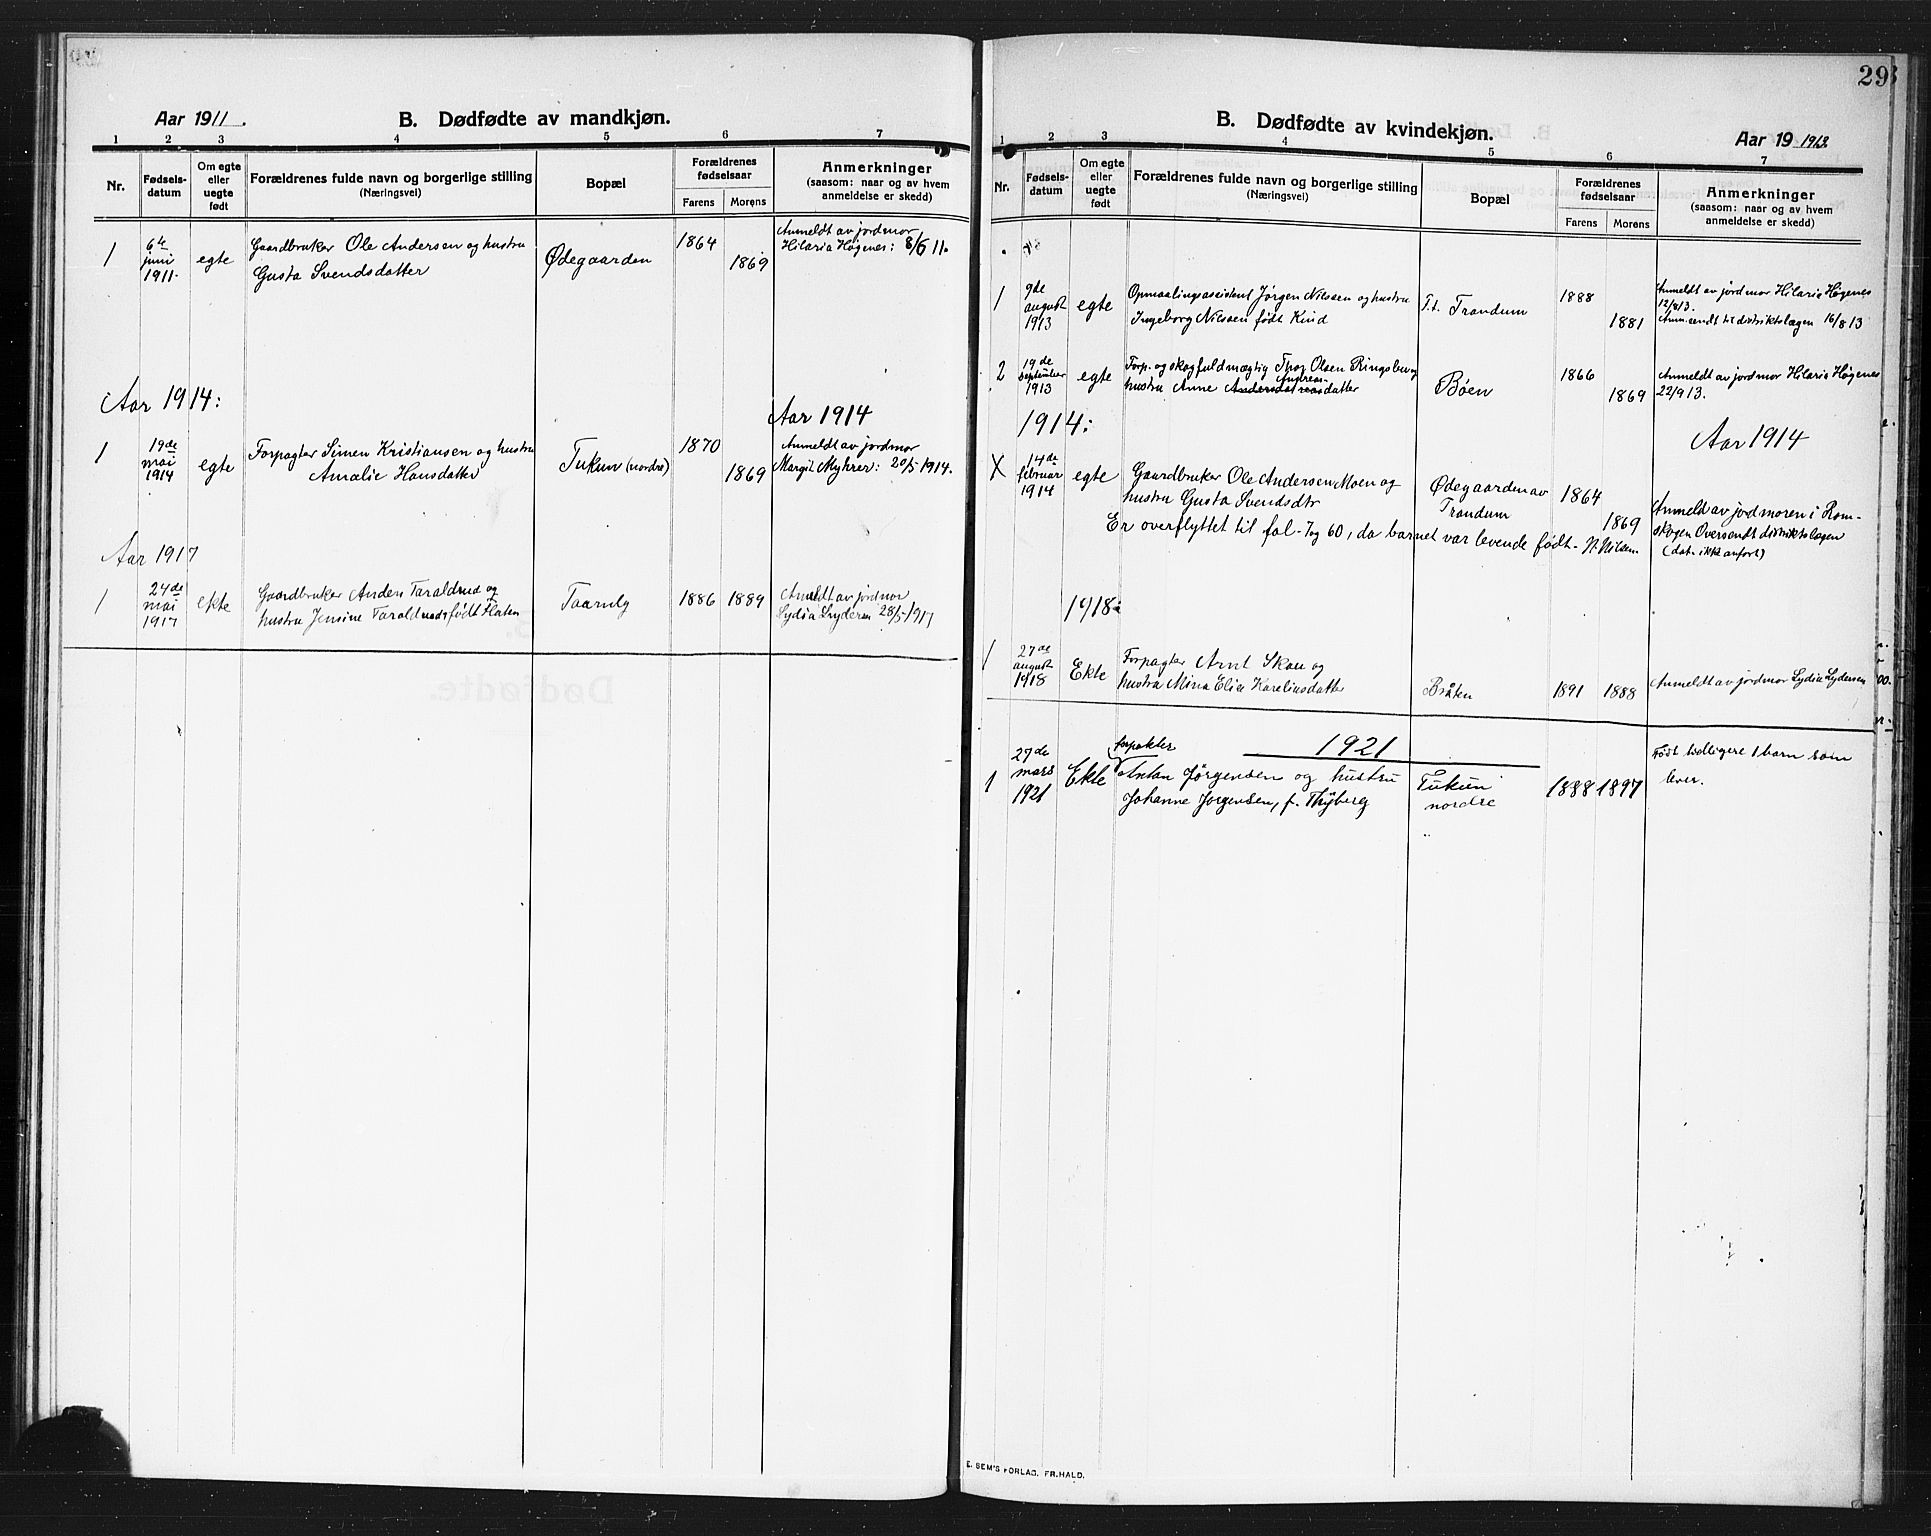 Aar 1911.
B. Dødfødte av mandkjøn.
1 2 3 4 5 6 7
Nr.
Fødsels-
datum
Om egte
eller
uegte
født
Forældrenes fulde navn og borgerlige stilling
(Næringsvei)
Bopæl
Forældrenes
fødselsaar
Farens Morens
Anmerkninger
(saasom: naar og av hvem
anmeldelse er skedd)
1
6te
juni
1911.
egte
Gaardbruker Ole Andersen og hustru
Gusta Svendsdatter
Ødegaarden
1864
1869
Anmeldt av jordmor
Hilaria Høgenes: 8/6 11.
Aar 1914:
Aar 1914
1
19de
mai
1914
egte
Forpagter Simen Kristiansen og hustru
Amalie Hansdatter
Tukun (nordre)
1870
1869
Anmeldt av jordmor
Margit Myhrer: 20/5 1914.
Aar 1917
1
24de
mai
1917
ekte
Gaardbruker Anders Taraldrud og
hustru Jensine Taraldrud født Flaten
Taarnby
1886 1889
Anmeldt av jordmor
Lydia Lydersen 28/5 1917
29
B. Dødfødte av kvindekjøn.
Aar 19 1913.
1 2 3 4 5 6 7
Nr.
Fødsels-
datum
Om egte
eller
uegte
født
Forældrenes fulde navn og borgerlige stilling
(Næringsvei)
Bopæl
Forældrenes
fødselsaar
Farens Morens
Anmerkninger
(saasom: naar og av hvem
anmeldelse er skedd)
1
9de
august
1913
egte
Opmaalingsassistent Jørgen Nilssen og hustru
Ingeborg Nilssen født Kind
T.t. Trandum
1888
1881
Anmeldt av jordmor Hilaria Høgenes
12/8 13.
Anm. sendt til distriktslægen 16/8 13
2
19de
september
1913
egte
Forp. og skogfuldmægtig Thor Olsen Ringsby og
hustru Anne Andreasdatter
Bøen
1866
1869
Anmeldt av jordmor Hilaria Høgenes
22/9 13.
1914:
Aar 1914
X
14de
februar
1914
egte
Gaardbruker Ole Andersen Moen og
hustru Gusta Svendsdtr
Ødegaarden av
Trandum
1864
1869
Anmeld av jordmoren i Rom-
skogen Oversendt distriktslægen
(dat. ikke anført)
Er overflyttet til fol. 7 og 60, da barnet var levende født - N. Nilsen.
1918:
1
27de
august
1918
Ekte
Forpagter Arnt Skau og
hustru Mina Elise Kareliusdatter
Bråten
1891 1888
Anmeldt av jordmor Lydia Lydersen
1921
1
27de
mars
1921
Ekte
forpakter
Anton Jørgensen og hustru
Johanne Jørgensen, f. Thyberg
Tukun
nordre
1888 1897
Født tidligere 1 barn som
lever.
E. SEM'S FORLAG, FR.HALD.